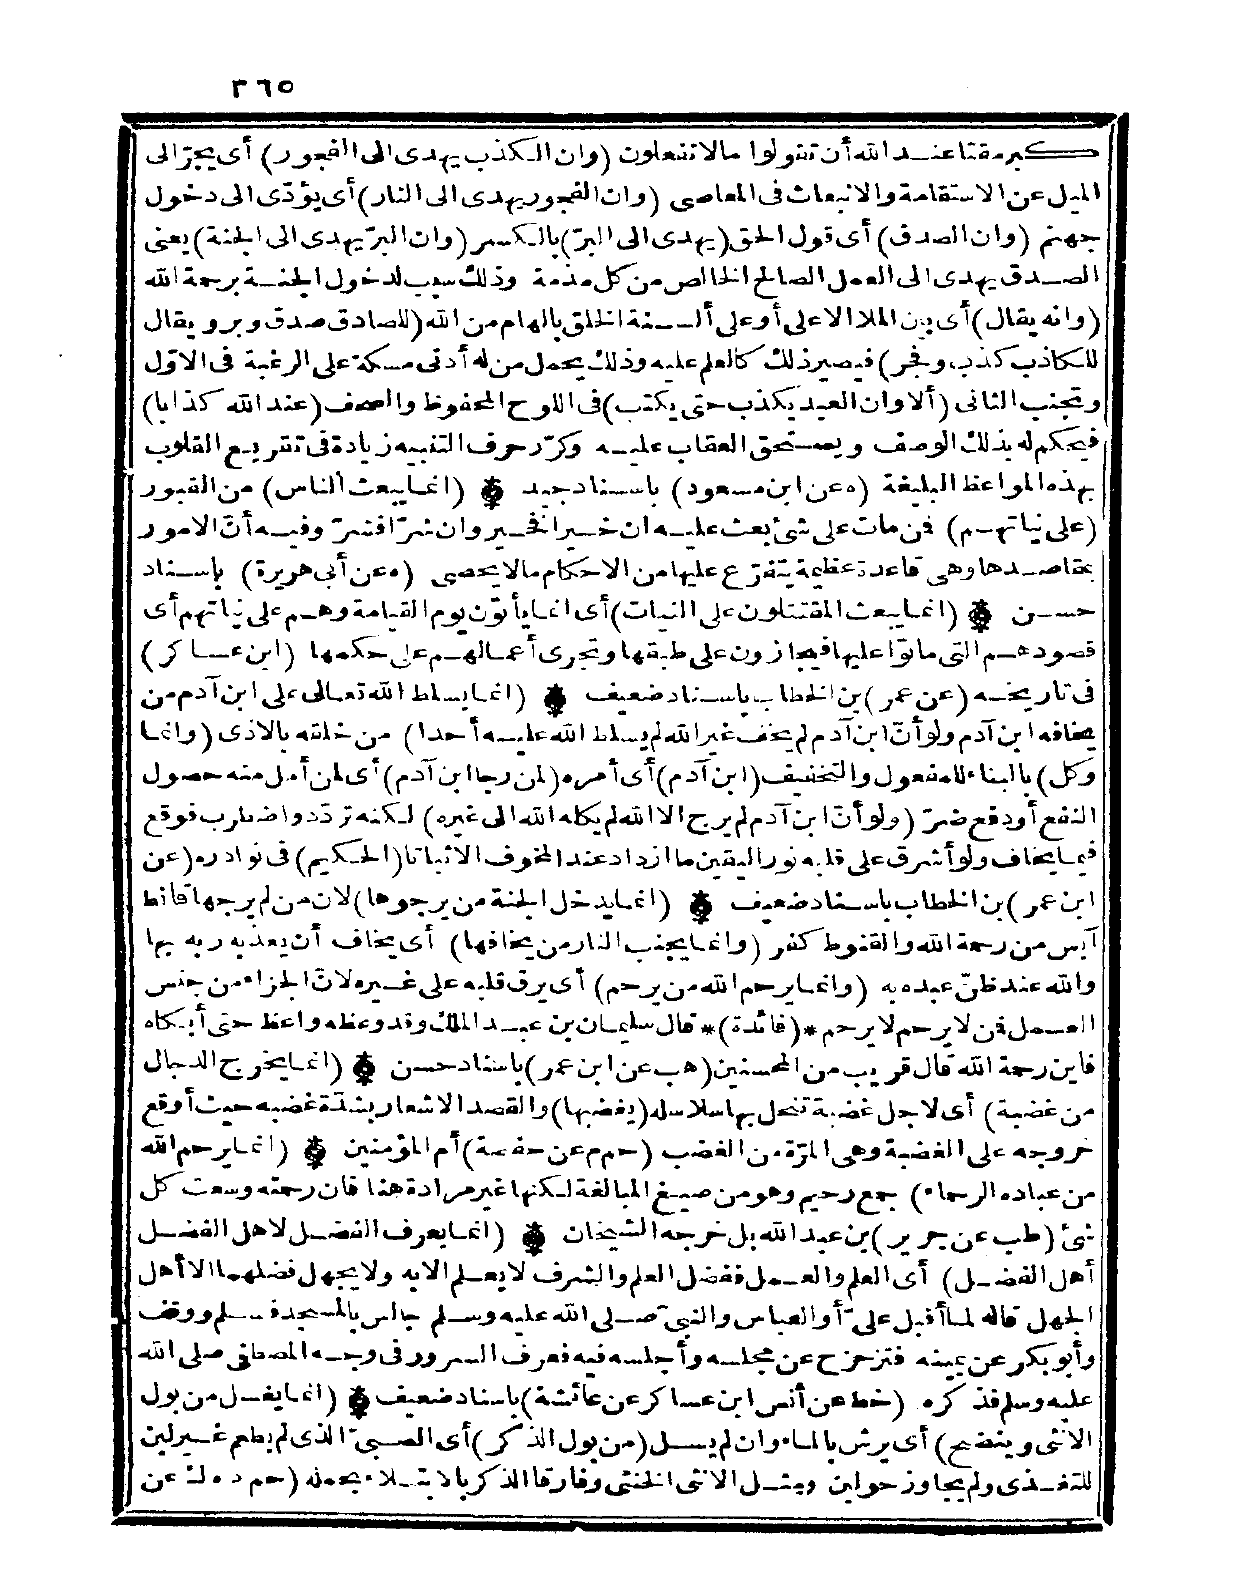 ٣٦٥
كبر مقتا عند الله أن تقولوا ما لا تفعلون (وان الكذب يهدى الى الفجور) أى يجرّ الى
الميل عن الاستقامة والانبعاث فى المعاصى (وان الفجور يهدى الى النار) أى يؤدّى الى دخول
جهنم (وان الصدق) أى قول الحق (يهدى الى البرّ) بالكسر (وان البرّ يهدى الى الجنة) يعنى
الصدق يهدى الى العمل الصالح الخالص من كل مذمة وذلك سبب لدخول الجنة برحمة الله
(وانه يقال) أى بين الملا الاعلى أو على ألسنة الخلق بالهام من الله (للصادق صدق وبر ويقال
للكاذب كذب وفجر) فيصير ذلك كالعلم عليه وذلك يحمل من له أدنى مسكة على الرغبة فى الاوّل
وتجنب الثانى (ألا وان العبد يكذب حتى يكتب) فى اللوح المحفوظ والصحف (عند الله كذابا)
فيحكم له بذلك الوصف ويستحق العقاب عليه وكرّر حرف التنبيه زيادة فى تقريع القلوب
بهذه المواعظ البليغة (ه عن ابن مسعود) باسناد جيد ۞ (انما يبعث الناس) من القبور
(على نياتهم) فمن مات على شئ بعث عليه ان خيرا فخير وان شرّا فشرّ وفيه أنّ الامور
بمقاصدها وهى قاعدة عظيمة يتفرّع عليها من الاحكام ما لا يحصى (ه عن أبى هريرة) باسناد
حسن ۞ (انما يبعث المقتتلون على النيات) أى انما يأتون يوم القيامة وهم على نياتهم أى
قصودهم التى ماتوا عليها فيجازون على طبقها وتجرى أعمالهم على حكمها (ابن عساكر)
فى تاريخه (عن عمر) بن الخطاب باسناد ضعيف ۞ (انما يسلط الله تعالى على ابن آدم من
يخافه ابن آدم ولو أنّ ابن آدم لم يخف غير الله لم يسلط الله عليه أحدا) من خلقه بالاذى (وانما
وكل) بالبناء للمفعول والتخفيف (ابن آدم) أى أمره (لمن رجا ابن آدم) أى لمن أمل منه حصول
النفع أو دفع ضرّ (ولو أنّ ابن آدم لم يرج الا الله لم يكله الله الى غيره) لكنه تردّد واضطرب فوقع
فيما يخاف ولو أشرق على قلبه نور اليقين ما ازداد عند المخوف الاثباتا (الحكيم) فى نوادره (عن
ابن عمر) بن الخطاب باسناد ضعيف ۞ (انما يدخل الجنة من يرجوها) لان من لم يرجها قانط
آيس من رحمة الله والقنوط كفر (وانما يجنب النار من يخافها) أى يخاف أن يعذبه ربه بها
والله عند ظنّ عبده به (وانما يرحم الله من يرحم) أى يرق قلبه على غيره لانّ الجزاء من جنس
العمل فمن لا يرحم لا يرحم *(فائدة)* قال سليمان بن عبد الملك وقد وعظه واعظ حتى أبكاه
فأين رحمة الله قال قريب من المحسنين (هب عن ابن عمر) باسناد حسن ۞ (انما يخرج الدجال
من غضبة) أى لاجل غضبة تنحل بها سلاسله (يغضبها) والقصد الاشعار بشدّة غضبه حيث أوقع
خروجه على الغضبة وهى المرّة من الغضب (حم م عن حفصة) أم المؤمنين ۞ (انما يرحم الله
من عباده الرحماء) جمع رحيم وهو من صيغ المبالغة لكنها غير مرادة هنا فان رحمته وسعت كل
شئ (طب عن جرير) بن عبد الله بل خرجه الشيخان ۞ (انما يعرف الفضل لاهل الفضل
أهل الفضل) أى العلم والعمل ففضل العلم والشرف لا يعلم الا به ولا يجهل فضلهما الا أهل
الجهل قاله لما أقبل علىّ أو العباس والنبىّ صلى الله عليه وسلم جالس بالمسجد فسلم ووقف
وأبو بكر عن يمينه فتزحزح عن مجلسه وأجلسه فيه فعرف السرور فى وجه المصطفى صلى الله
عليه وسلم فذكره (خط عن أنس ابن عساكر عن عائشة) باسناد ضعيف ۞ (انما يغسل من بول
الانثى وينضح) أى يرش بالماء وان لم يسل (من بول الذكر) أى الصبىّ الذى لم يطعم غير لبن
للتغذى ولم يجاوز حولين ومثل الانثى الخنثى وفارقا الذكر بالابتلاء بحمله (حم د ه ك عن